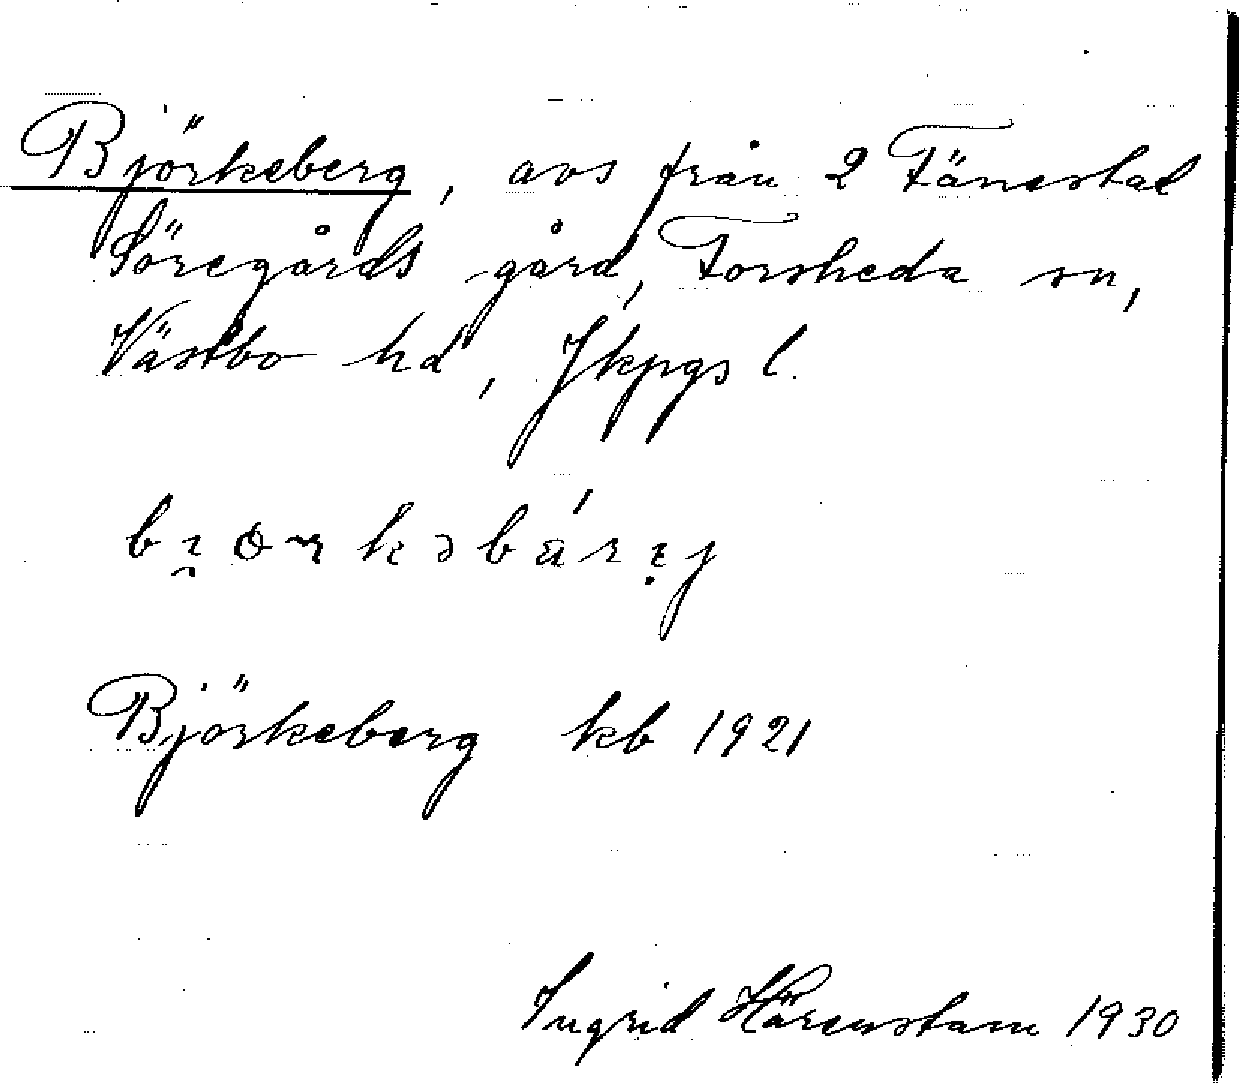 Björkeberg, avs från 2 Tånestad
Söregårds gård, Forsheda sn,
Västbo hd, Jkpgs l.
Björkeberg kb 1921
Ingrid Härenstam 1930